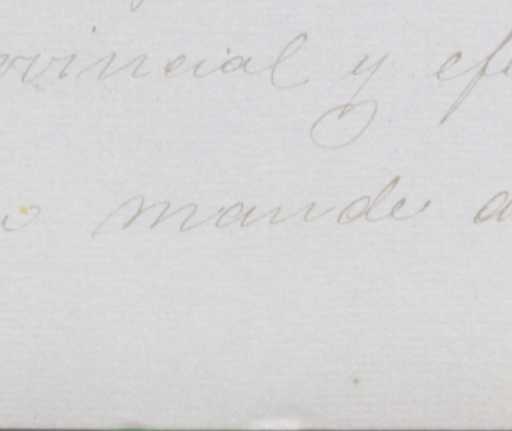 rovincial y ef
o mande a